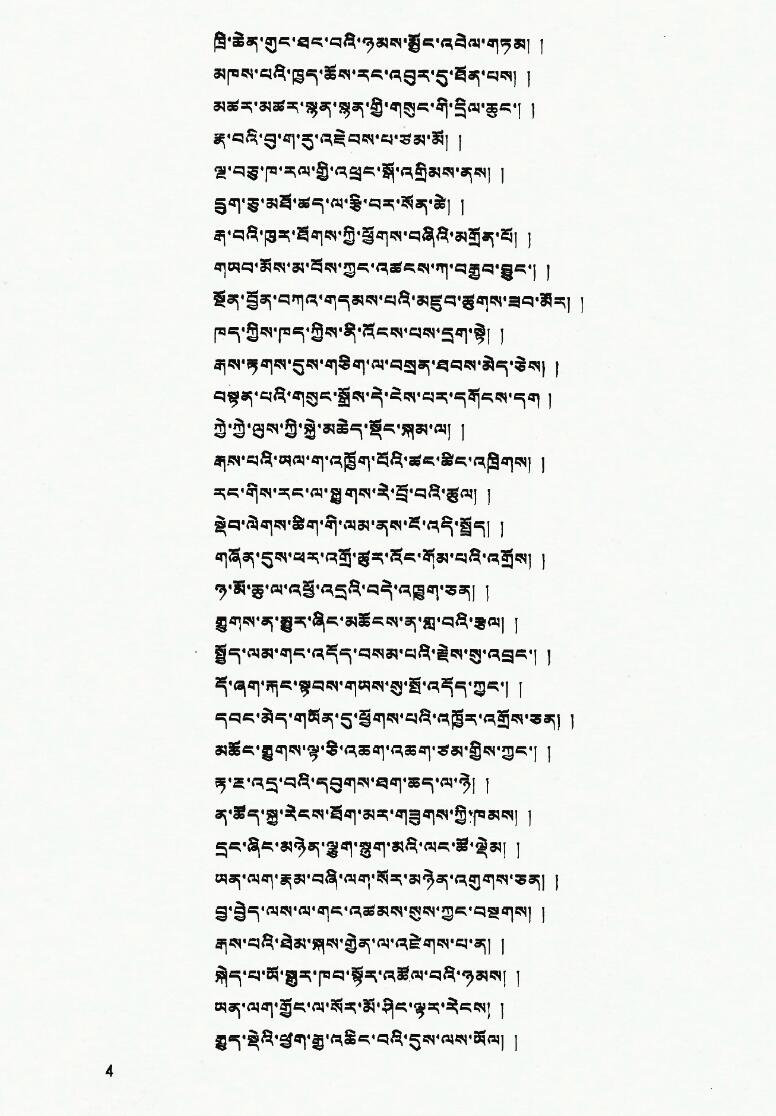 ཁྲི་ཆེན་གུང་ཐང་བའི་ཉམས་མྱོང་འབེལ་གཏམ། །
མཁས་པའི་ཁྱད་ཆོས་རང་འབུར་དུ་ཐོན་པས། །
མཚར་མཚར་སྙན་སྙན་གྱི་གསུང་གི་དྲིལ་ཆུང་། །
རྣ་བའི་བུ་ག་རུ་འཇེབས་པ་ཙམ་མོ། །
ལྔ་བཅུ་ཁ་རལ་གྱི་འཕྲང་སྒོ་འགྲིམས་ནས། །
དྲུག་ཅུ་མཐོ་ཚད་ལ་རྩི་བར་སོན་ཚེ། །
རྒ་བའི་ཁུར་ཐོགས་ཀྱི་ཕྱོགས་བཞིའི་མགྲོན་པོ། །
གཡབ་མོས་མ་བོས་ཀྱང་འཚངས་ཀ་བརྒྱབ་བྱུང་། །
སྔོན་བྱོན་བཀའ་གདམས་པའི་མཛུབ་ཚུགས་ཟབ་མོར། །
ཁད་ཀྱིས་ཁད་ཀྱིས་ནི་འོངས་པས་དྲག་སྟེ། །
རྒས་རྟགས་དུས་གཅིག་ལ་བསྲན་ཐབས་མེད་ཅེས། །
བསྟན་པའི་གསུང་སྒྲོས་དེ་ངེས་པར་དགོངས་དག །
ཀྱེ་ཀྱེ་ལུས་ཀྱི་སྐྱེ་མཆེད་སྡོང་སྐམ་ལ། །
རྒས་པའི་ཡལ་ག་འཁྱོག་པོའི་ཚང་ཚིང་འཁྲིགས། །
རང་གིས་རང་ལ་སྐྱུགས་རེ་བྲོ་བའི་ཚུལ། །
སྡེབ་ལེགས་ཚིག་གི་ལམ་ནས་ངོ་འདི་སྤྲོད། །
གཞོན་དུས་ཕར་འགྲོ་ཚུར་འོང་གོམ་པའི་འགྲོས། །
ཉ་མོ་ཆུ་ལ་འཕྱོ་འདྲའི་བདེ་འཁྱུག་ཅན། །
རྒྱུགས་ན་མྱུར་ཞིང་མཆོངས་ན་གླ་བའི་རྩལ། །
སྤྱོད་ལམ་གང་འདོད་བསམ་པའི་རྗེས་སུ་འབྲང་། །
དོ་ཞག་རྐང་སྟབས་གཡས་སུ་སྤོ་འདོད་ཀྱང་། །
དབང་མེད་གཡོན་དུ་ཕྱོགས་པའི་འཁྱོར་འགྲོས་ཅན། །
མཆོང་རྒྱུགས་ལྟ་ཅི་འཆག་འཆག་ཙམ་གྱིས་ཀྱང་། །
རྟ་རྔ་འདྲ་བའི་དབུགས་ཐག་ཆད་ལ་ཉེ། །
ན་ཚོད་སྐྱ་རེངས་ཐོག་མར་གཟུགས་ཀྱི་ཁམས། །
དྲང་ཞིང་མཉེན་ལྕུག་སྨྱུག་མའི་ལང་ཚོ་ལྡེམ། །
ཡན་ལག་རྣམ་བཞི་ལག་སོར་མཉེན་འགུགས་ཅན། །
བྱ་བྱེད་ལས་ལ་གང་འཚམས་སུས་ཀྱང་བསྔགས། །
རྒས་པའི་ཐེམ་སྐས་གྱེན་ལ་འཛེགས་པ་ན། །
སྐེད་པ་ཡོ་སྒུར་ཁབ་སྟོར་འཚོལ་བའི་ཉམས། །
ཡན་ལག་གྲོང་ལ་སོར་མོ་ཤིང་ལྟར་རེངས། །
རྒྱུད་སྡེའི་ཕྱག་རྒྱ་འཆིང་བའི་དུས་ལས་ཡོལ། །
4